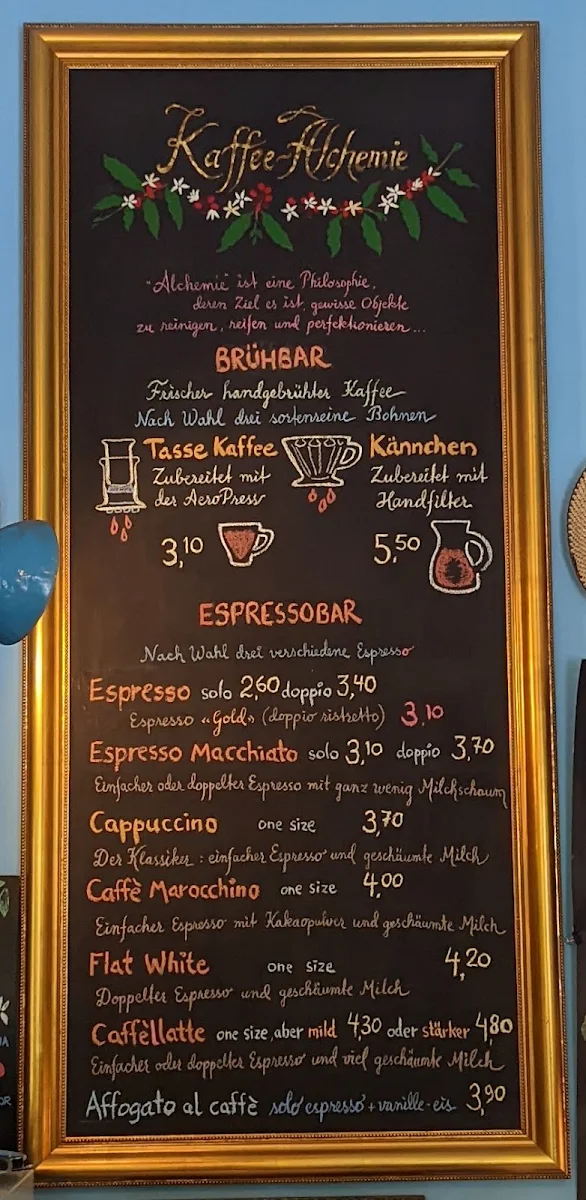 Kaffee-Alchemie
"Alchemie" ist eine Philosophie,
deren Ziel es ist, gewisse Objekte
zu reinigen, reifen und perfektionieren...
BRÜHBAR
Frischer handgebrühter Kaffee
Nach Wahl drei sortenreine Bohnen
Tasse Kaffee
Zubereitet mit
der AeroPress
3,10
Kännchen
Zubereitet mit
Handfilter
5,50
ESPRESSOBAR
Nach Wahl drei verschiedene Espresso
Espresso solo 2,60 doppio 3,40
Espresso «Gold» (doppio ristretto) 3,10
Espresso Macchiato solo 3,10 doppio 3,70
Einfacher oder doppelter Espresso mit ganz wenig Milchschaum
Cappuccino one size 3,70
Der Klassiker: einfacher Espresso und geschäumte Milch
Caffè Marocchino one size 4,00
Einfacher Espresso mit Kakaopulver und geschäumte Milch
Flat White one size 4,20
Doppelter Espresso und geschäumte Milch
Caffèllatte one size, aber mild 4,30 oder stärker 4,80
Einfacher oder doppelter Espresso und viel geschäumte Milch
Affogato al caffè solo espresso + vanille-eis 3,90